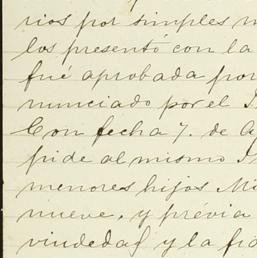 rios por simples m
los presentó con la
fué aprobada por
nunciado por el I
Con fecha 7. de A
pide al mismo I
menores hijos Mi
nueve, y prévia
viudedad y la fia